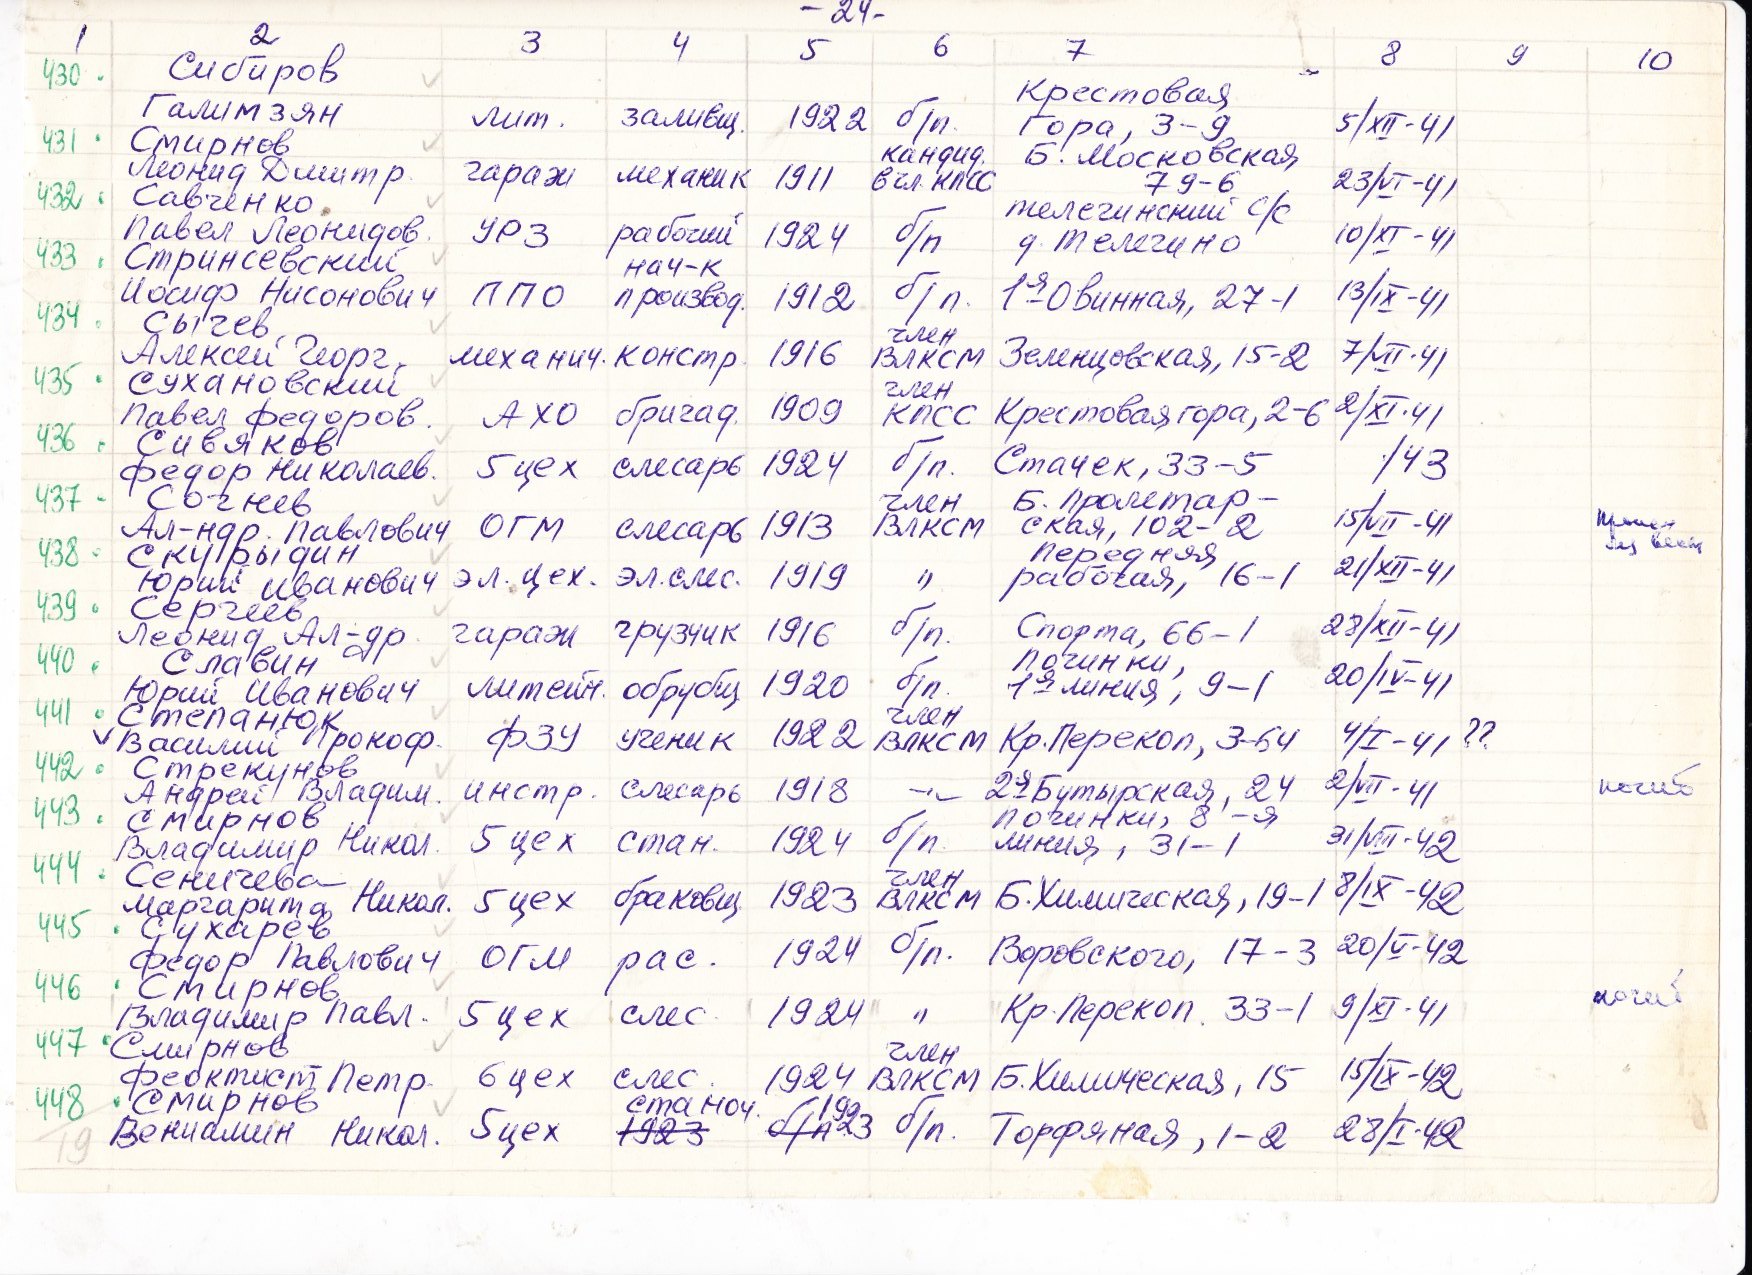 - 24 -
1 2 3 4 5 6 7 8 9 10
430. Сибиров Крестовая
Галимзян лит. заливщ. 1922 б/п. Гора, 3-9 5/XII-41
431. Смирнов кандид. Б. Московская
Леонид Дмитр. гараж механик 1911 в чл. КПСС 79-6 23/VI-41
432. Савченко Телегинский с/с
Павел Леонидов. УРЗ рабочий 1924 б/п д. Телегино 10/XI-41
433. Стринсевский нач-к
Иосиф Нисонович ППО производ. 1912 б/п. 1я Овинная, 27-1 13/IX-41
434. Сычев член
Алексей Георг. механич. констр. 1916 ВЛКСМ Зеленцовская, 15-2 7/VII-41
435. Сухановский член
Павел Федоров. АХО бригад. 1909 КПСС Крестовая гора, 2-6 2/XI-41
436. Сивяков
Федор Николаев. 5 цех слесарь 1924 б/п. Стачек, 33-5 /43
437 - Сочнев член Б. Пролетар-
Ал-ндр. Павлович ОГМ слесарь 1913 ВЛКСМ ская, 102-2 15/VII-41 без вест
438 - Скурыдин Передняя
Юрий Иванович эл. цех. эл. слес. 1919 " рабочая, 16-1 21/XII-41
439. Сергеев
Леонид Ал-др. гараж грузчик 1916 б/п. Спорта, 66-1 28/XII-41
440. Славин Починки,
Юрий Иванович литейн. обрубщ 1920 б/п. 1я линия, 9-1 20/IV-41
441. Степанюк член
Василий Прокоф. ФЗУ ученик 1922 ВЛКСМ Кр. Перекоп, 3-64 4/I-41 ??
442. Стрекунов
Андрей Владим. инстр. слесарь 1918 -"- 2я Бутырская, 24 2/VII-41 погиб
443. Смирнов Починки, 8-я
Владимир Никол. 5 цех стан. 1924 б/п. линия, 31-1 31/VIII-42
444. Сеничева член
Маргарита Никол. 5 цех браковщ 1923 ВЛКСМ Б. Химическая, 19-1 8/IX-42
445. Сухарев
Федор Павлович ОГМ рас. 1924 б/п. Воровского, 17-3 20/V-42
446. Смирнов
Владимир Павл. 5 цех слес. 1924 " Кр. Перекоп. 33-1 9/XI-41 погиб
447. Смирнов член
Феоктист Петр. 6 цех слес. 1924 ВЛКСМ Б. Химическая, 15 15/IX-42
448. Смирнов станоч. 1923
Вениамин Никол. 5 цех 1923 б/п б/п. Торфяная, 1-2 28/I-42
19